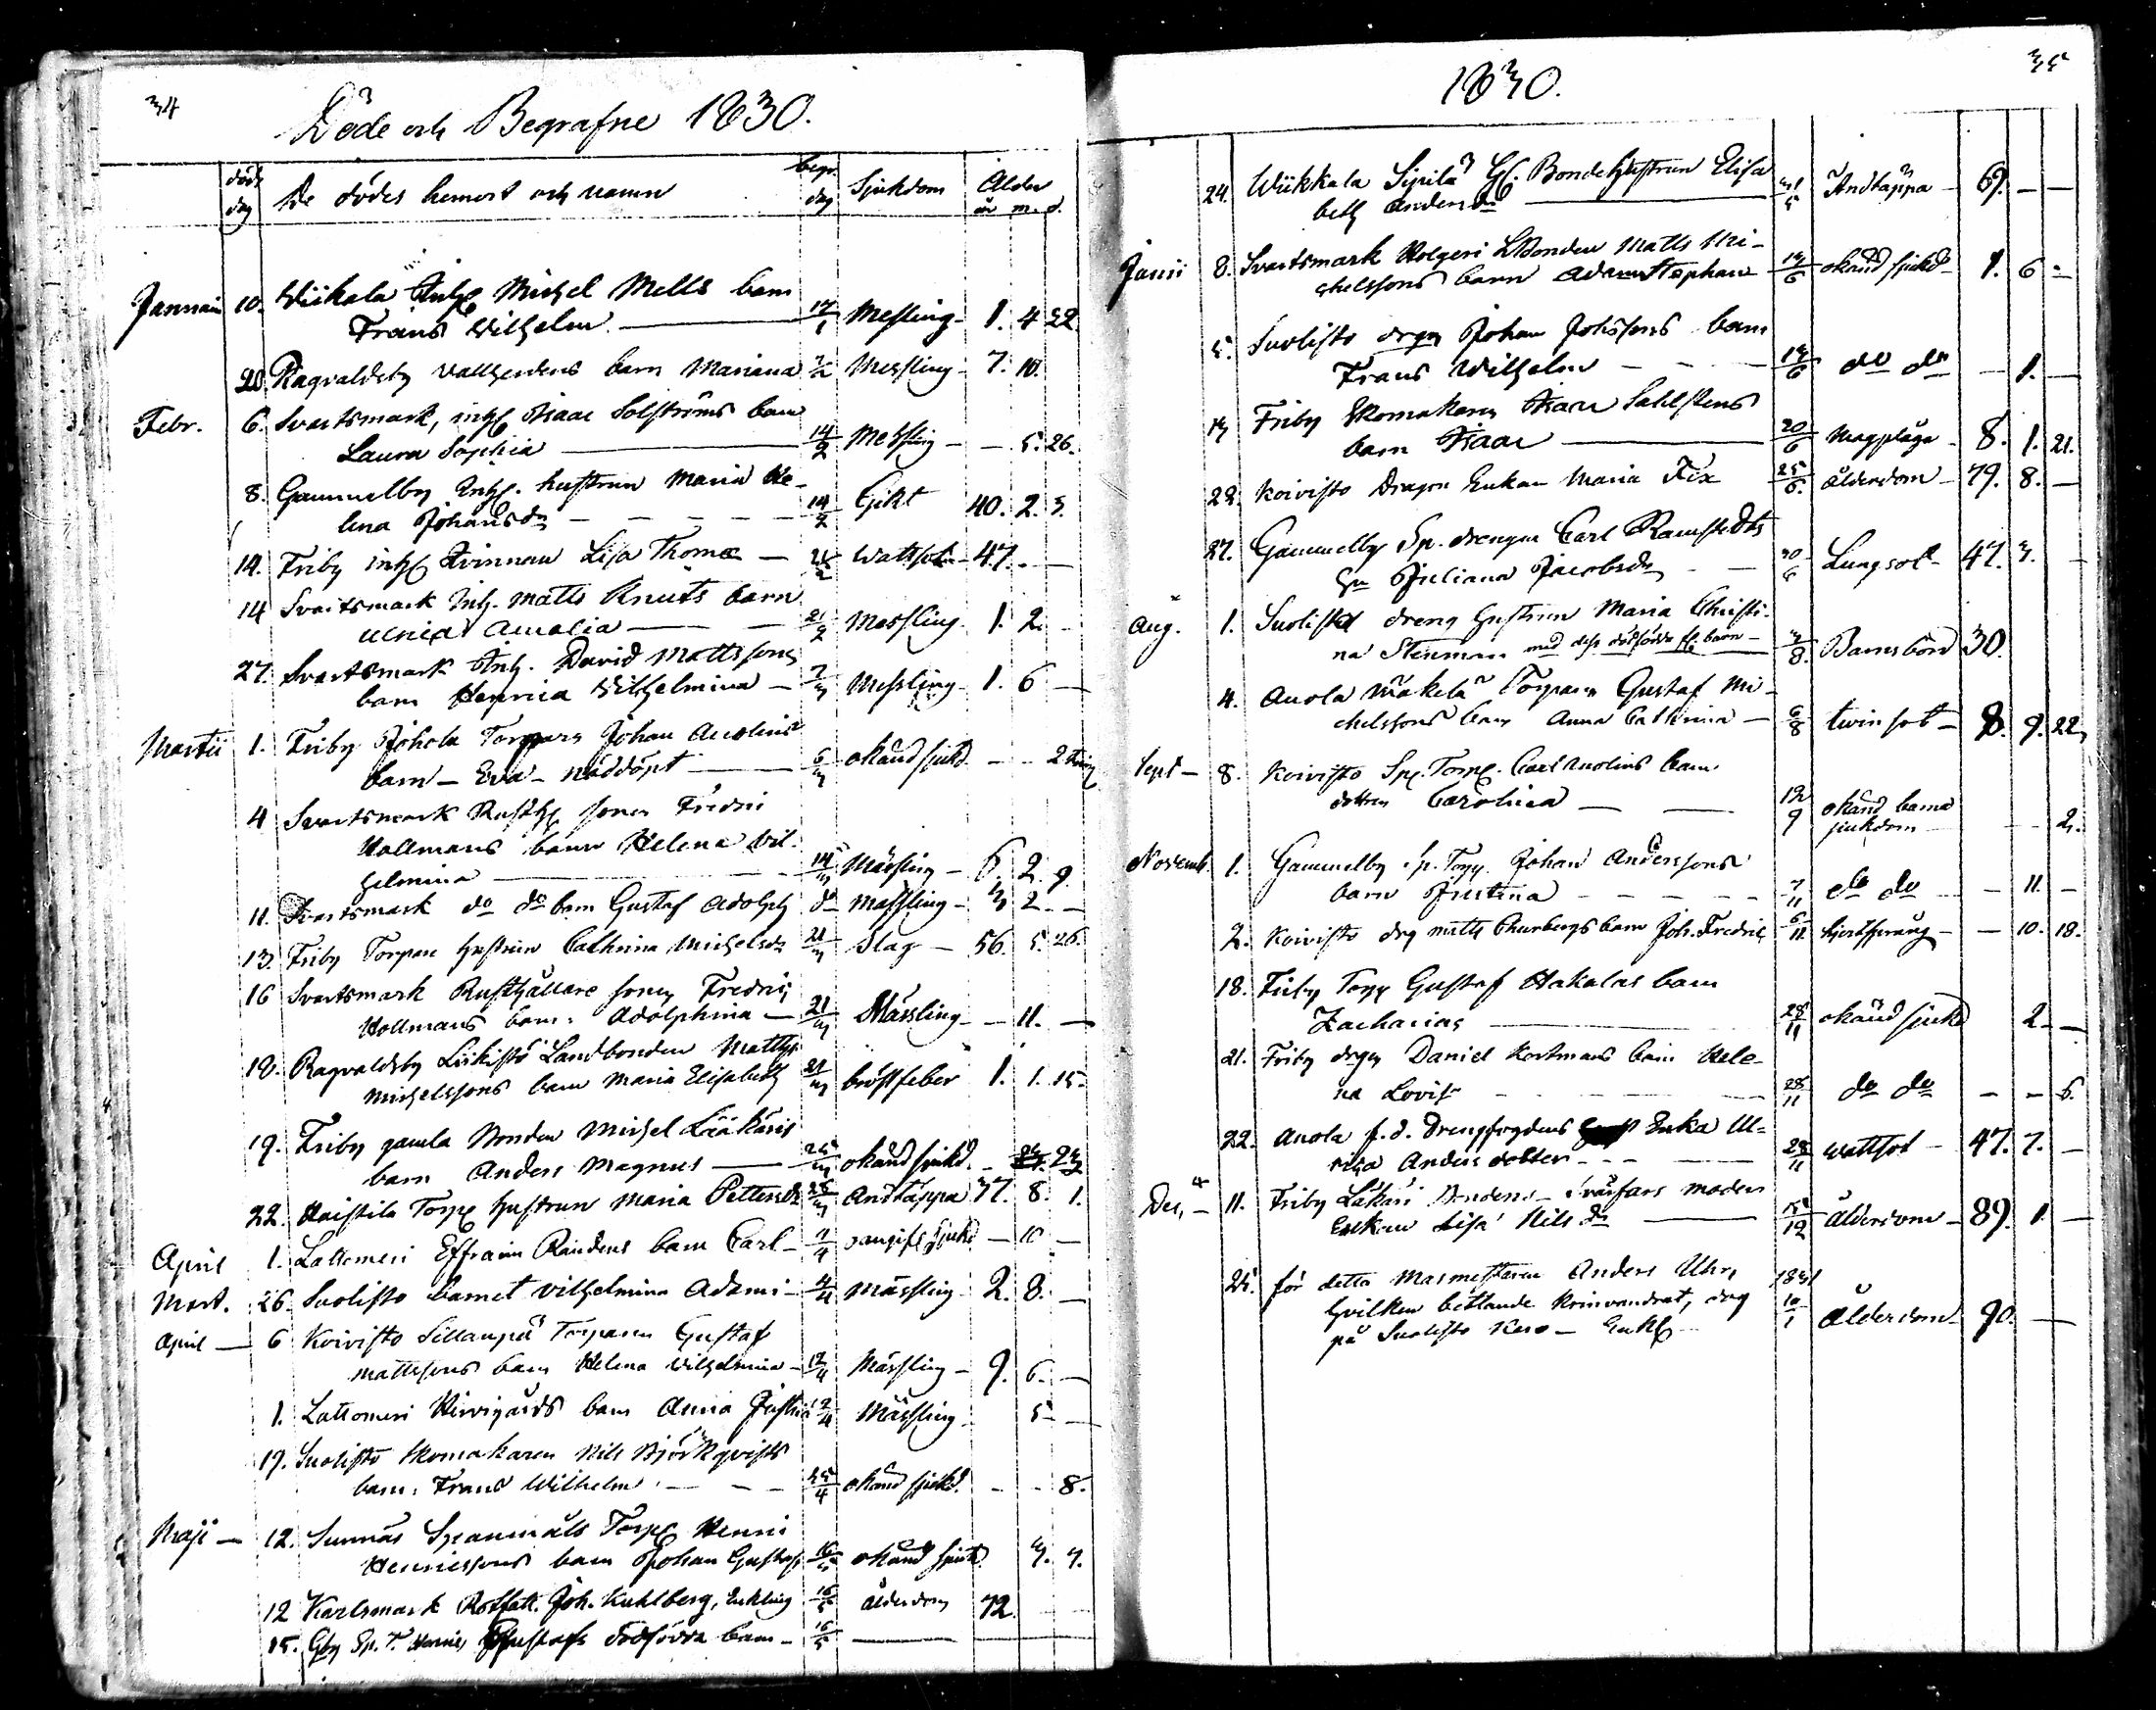 34
Döde och Begrafne 1830.
döds dag De dödes hemort och namn begr. dag Sjukdom Ålder år m. d.
Januarii 10. Wiikala Inh Michel Mells barn
Frans Wilhelm 17/1 Messling 1. 4 22
20. Ragvaldsby barn Mariana 7/2 Messling 7. 10.
Febr. 6. Svartsmark, inh Isaac Solströms barn
Laura Sophia 14/2 Messling - 5. 26.
8. Gammelby Inh. hustrun Maria He-
lena Johansdr 14/2 Gikt 40. 2. 3.
14. Friby inh Qvinnan Lisa Thomæ Wattsot 47. -
14 Svartsmark Inh. Matts Knuts barn
Ulrica Amalia 21/2 Messling 1. 2. -
27. Svartsmark Inh. David Mattssons
barn Henrica Wilhelmina 7/3 Messling 1. 6 -
Martii 1. Friby Johola Torparn Johan Anolins
barn - Eva - nöddöpt 6/3 okänd sjukd - - 2
4 Svartsmark Rusth sonen Fredric
Hollmans barn Helena Vil-
helmina 14/3 Mässling 6. 2. 9.
11. Svartsmark do do barn Gustaf Adolph do Mässling 3 2 -
13. Friby Torpare hustrun Cathrina Michelsdr 21/3 Slag 56. 5. 26.
16 Svartsmark Rusthållare sonen Fredric
Hollmans barn Adolphina 21/3 Mässling - 11. -
18. Ragvaldsby Liikistö Landbonden Matts
Michelssons barn Maria Elisabeth 21/3 bröstfeber 1. 1. 15.
19. Friby gamla Bonden Michel Lääkäris
barn Anders Magnus 25/3 okänd sjukd. - 23
22. Haistila Torp hustrun Maria Pettersdr 28/3 Andtäppa 37. 8. 1.
April 1. Lattomeri Effraim Randens barn Carl 4/4 oangifv. sjukd - 10 -
Mart. 26. Suolisto barnet Vilhelmina Adami 4/4 Mässling 2. 8. -
April 6 Koivisto Sillanpää Torparen Gustaf
Mattssons barn Helena Wilhelmina 12/4 Mässling 9. 6. -
1. Lattomeri Hirvigårds barn Anna Justina 12/4 Mässling 5 -
19. Suolisto Skomakaren Nils Björkqvists
barn. Frans Wilhelm 25/4 okänd sjukd. - - 8.
Maji 12. Sunnäs Torp Henric
Henricssons barn Johan Gustaf 16/5 okänd sjukd. 3. 7.
12 Karlsmark Johan Kuhlberg, Enkling 16/5 ålderdom 72.
15. Gby Sp. T. Henric Gustafs dödfödda barn 16/5
35
1830.
24. Wiikkala Sipilä Bonde Hustrun Elisa
beth Andersdr 31/5 Andtäppa 69. - -
Junii 8. Svartsmark Holgeri LBonden Matts Mi-
chelssons barn Adam Stephan 13/6 okänd sjukd 1. 6 -
5. Suolisto drgn Johan Johssons barn
Frans Wilhelm 13/6 do do - 1. -
13 Friby Skomakaren Isaac Sahlstens
barn Isaac 20/6 Magplåga 8. 1. 21.
22. Koivisto Dragon Enkan Maria Fix 25/6. ålderdom 79. 8. -
27. Gammelby Sp. drengen Carl Ramstedts
hu Juliana Jacobsdr 30/6 Lungsot 47. 3. -
Aug. 1. Suolisto dreng hustrun Maria Christi-
na Stenman med dess dödfödda barn 3/8. Barnsbörd 30.
4. Anola Mäkelä Torparen Gustaf Mi-
chelssons barn Anna Cathrina 6/8 tvinsot 8. 9. 22
Sept 8. Koivisto Sp. Torp. Carl Anolins barn
dottren Carolina 12/9 okänd barna sjukdom 2.
Novemb. 1. Gammelby Sp. Torp. Johan Anderssons
barn Justina 7/11 do do - 11. -
2. Koivisto drg Matts Churbergs barn Joh. Fredric 6/11 - 10. 18.
18. Friby Torp Gustaf Hakalas barn
Zacharias 28/11 okänd sjukd 2 -
21. Friby drgn Daniel Kortmans barn Hele-
na Lovisa 28/11 do do - - 6.
22. Anola f. d. Drengfogdens Enka Ul-
rica Anders dotter 28/11 Wattsot 47. 7. -
Dec. 11. Friby Läkäri Bondens Svärfars moder
Enkan Lisa Nils dr 15/12 Ålderdom 89. 1. -
25. för detta Masmestaren Anders Uhr,
hvilken bettlande kringvandrat, dog
på Suolisto Kero - Enkl 1831 10/1 Ålderdom 90. -